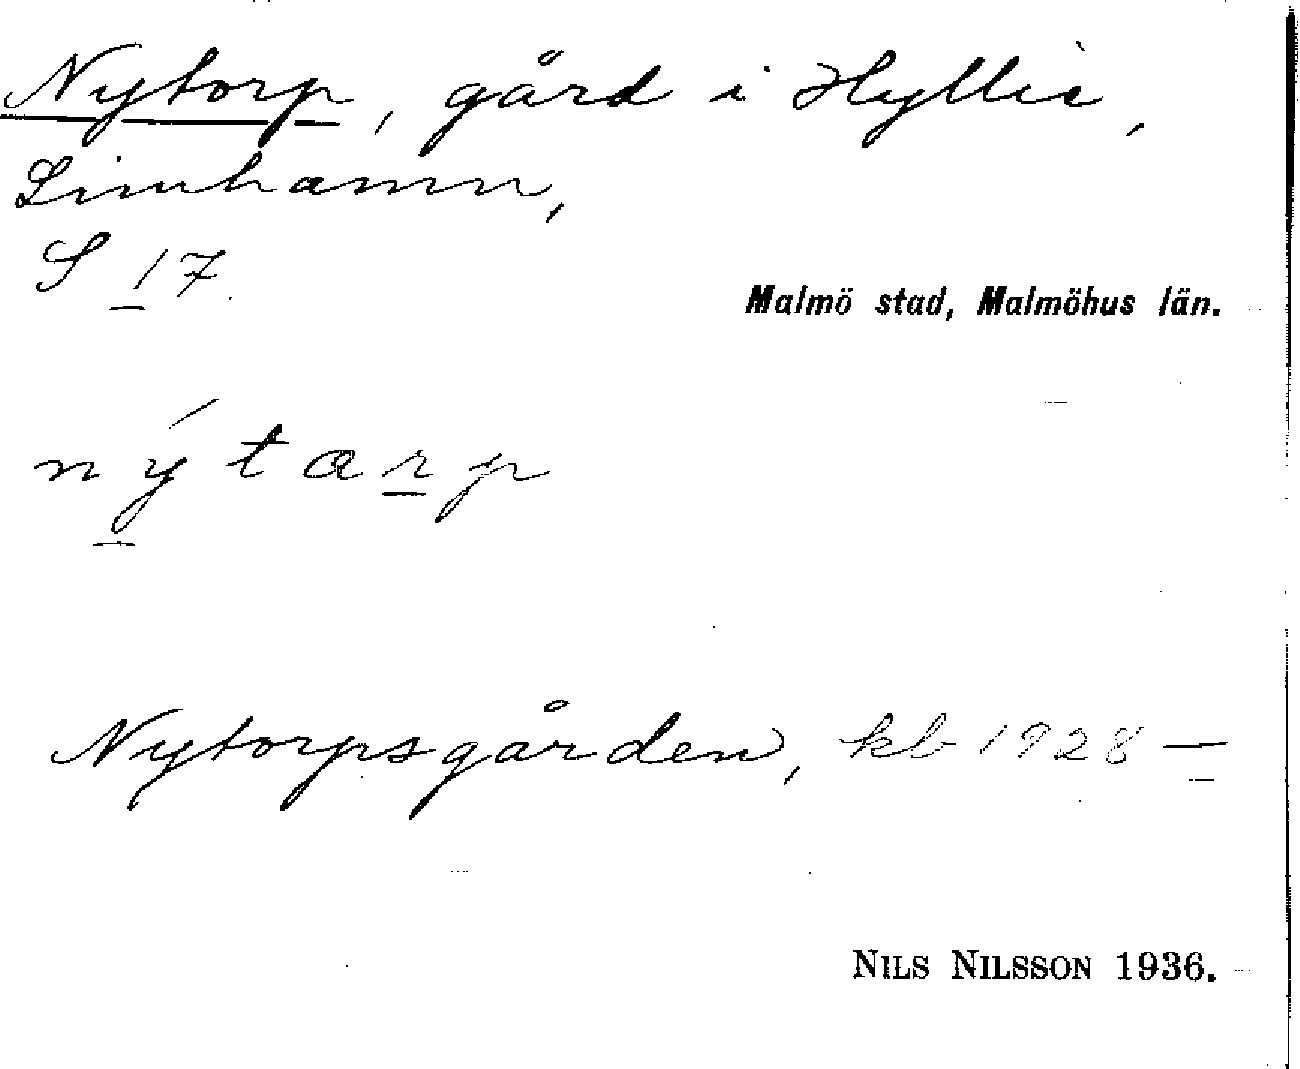 Nytorp, gård i Hyllie,
Limhamn,
S 17.
Malmö stad, Malmöhus län.
nýtarp
Nytorpsgården, kb 1928 —
NILS NILSSON 1936.